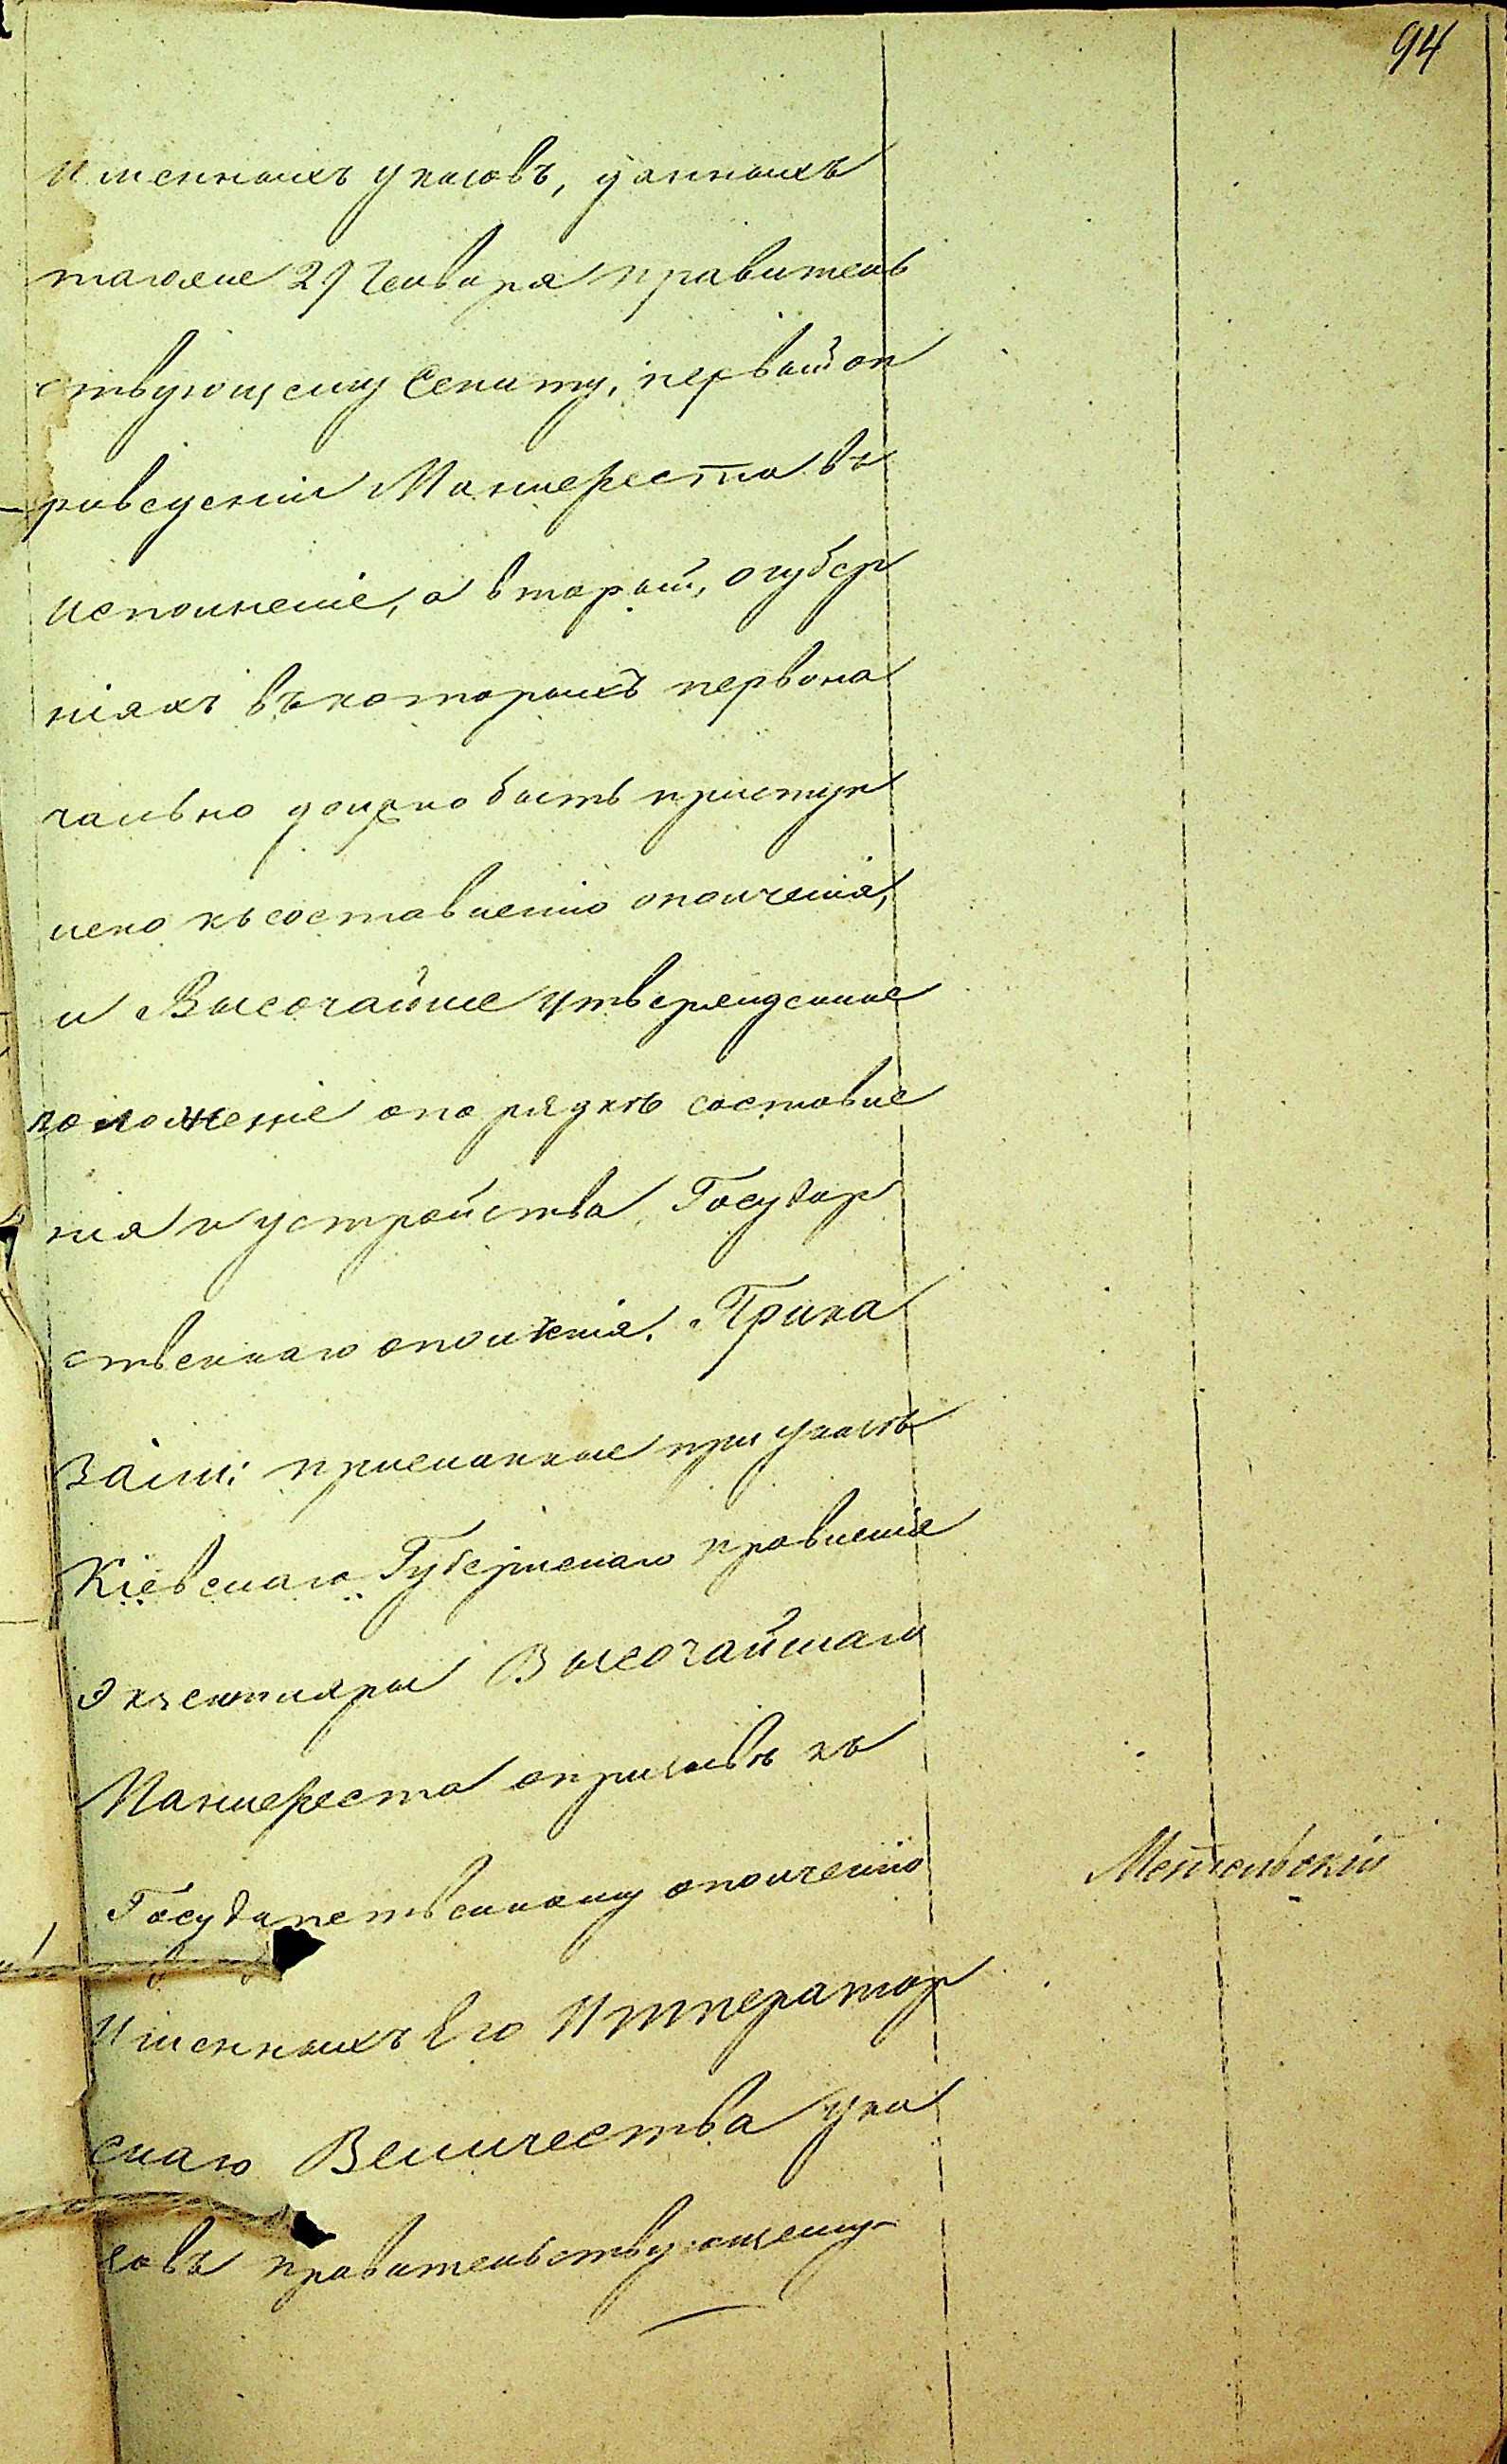 94
именныхъ указовъ, данныхъ
тогоже 29 Генваря правитель
ствующему Сенату, первый оп
риведеніи Манифеста въ
исполненіе, а вторый, огубер
ніяхъ въ которыхъ первона
чально должно быть приступ
лено къ составленію ополченія,
и Высочайше утвержденное
положеніе опорядкѣ составле
нія и устройства Государ
ственнаго ополченія. Прика
зали: присланные при указѣ
Кіевскаго Губернскаго правленія
экземпляры Высочайшаго
Манифеста опризывѣ къ
Государственному ополченію
именныхъ Его Император
скаго Величества ука
зовъ правительствующему